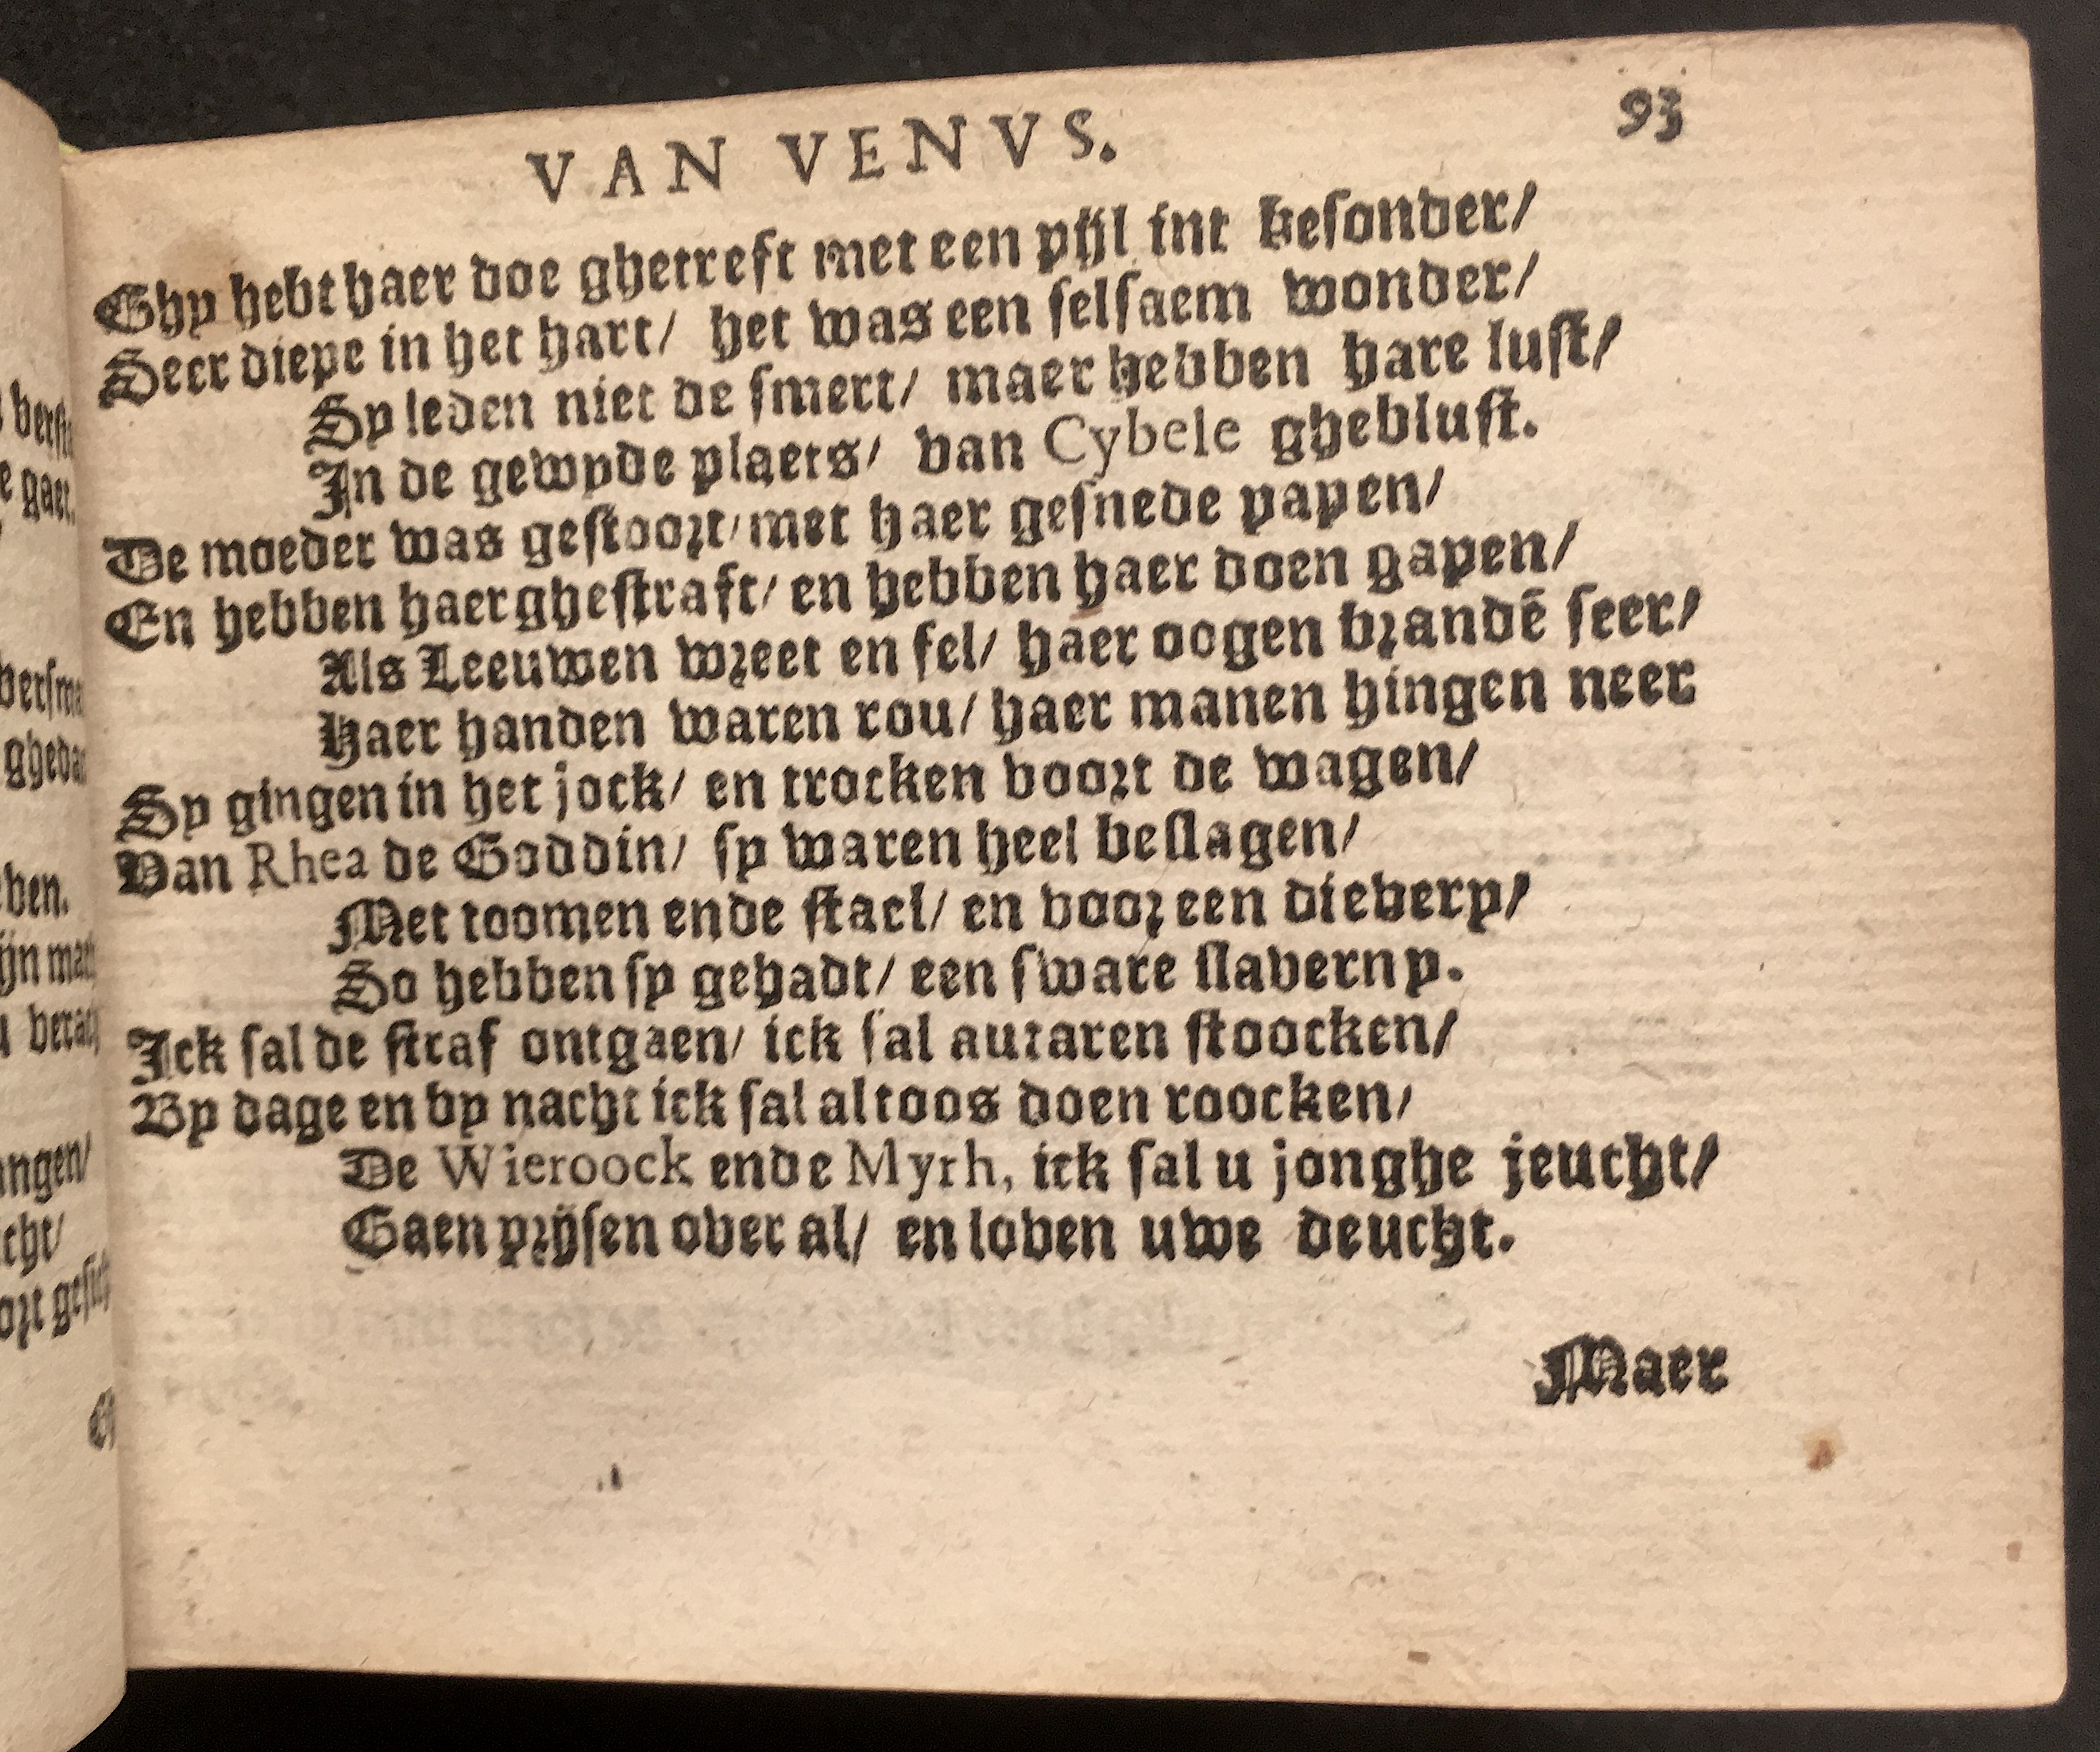 VAN VENVS. 93
Ghy hebt haer doe ghetreft met een pijl int besonder/
Seer diepe in het hart/ het was een selsaem wonder/
Sy leden niet de smert/ maer hebben hare lust/
In de gewyde plaets/ van Cybele gheblust.
De moeder was gestoort/ met haer gesnede papen/
En hebben haer ghestraft/ en hebben haer doen gapen/
Als Leeuwen wreet en fel/ haer oogen brandē seer/
Haer handen waren rou/ haer manen hingen neer
Sy gingen in het jock/ en trocken voort de wagen/
Van Rhea de Goddin/ sy waren heel beslagen/
Met toomen ende stael/ en voor een dievery/
So hebben sy gehadt/ een sware slaverny.
Ick sal de straf ontgaen/ ick sal autaren stoocken/
By dage en by nacht ick sal altoos doen roocken/
De Wieroock ende Myrh, ick sal u jonghe jeucht/
Gaen prijsen over al/ en loven uwe deucht.
Maer